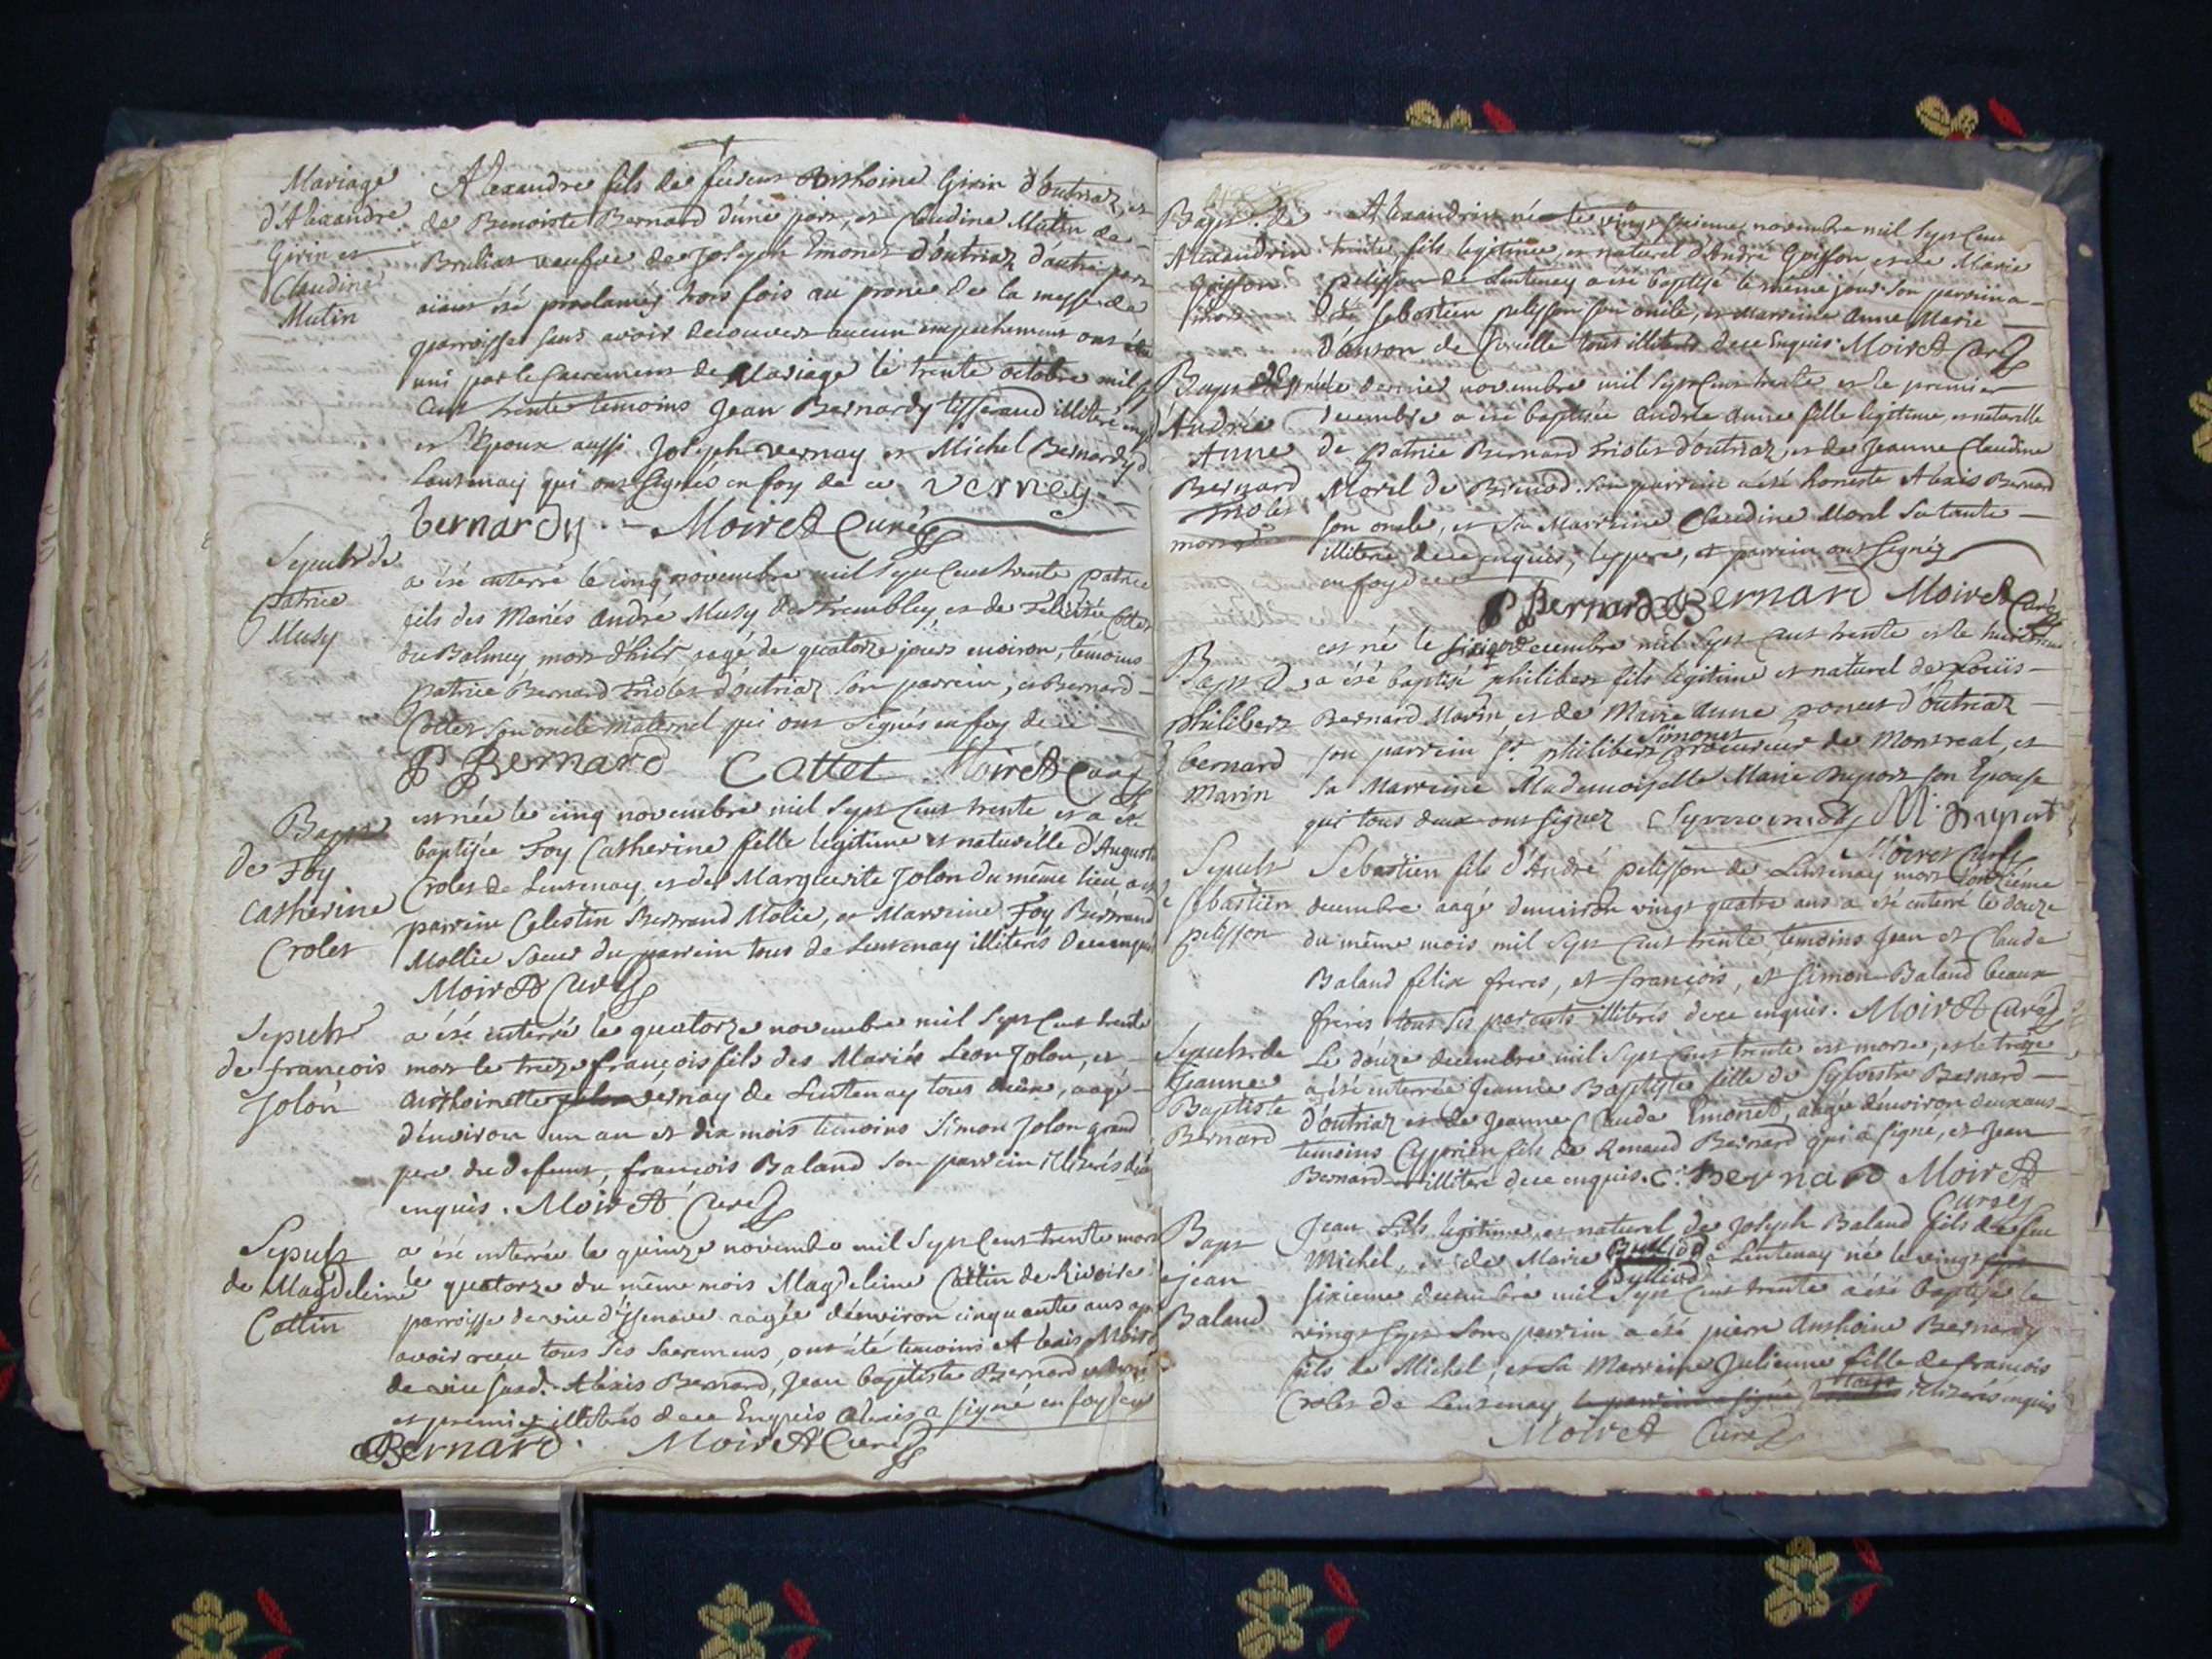 Mariage
d'Alexandre
Girin et
Claudine
Mutin
Alexandre fils de Anthoine Girin d'outriaz et
de Benoiste Bernard d'une part, et Claudine Mutin de
veufve de Joseph Emonet d'outriaz d'autre part
aiant été proclamés trois fois au prone de la messe de
parroisse sans avoir decouvert aucun empechement ont été
uni par le Sacrement de Mariage le trente octobre mil sept
cent trente temoins Jean Bernardy tisserand illiteré
et l'Epoux aussi. Joseph vernay et Michel Bernardy de
Lentenay qui ont signés en foy de ce verney
bernardy. Moiret Curé
Sepult de
patrice
Musy
a été enterré le cinq novembre mil sept cent trente patrice
fils des Mariés André Musy du Trembley, et de Felicité Cottet
du Balmey mort d'hier aagé de quatorze jours environ, témoins
patrice Bernard triolet d'outriaz son parrein, et Bernard
Cottet son oncle maternel qui ont signés en foy de ce
P Bernard Cottet Moiret Curé
Bapt
de Foy
Catherine
Crolet
est née le cinq novembre mil sept cent trente et a été
baptisée Foy Catherine fille legitime et naturelle d'Augustin
Crolet de Lentenay et de Marguerite Jolon du même lieu, a été
parrein Celestin Bertrand Molie, et Marreine Foy Bertrand
Mollie Soeur du parrein tous de Lentenay illiterés de ce enquis
Moiret Curé
Sepult
de françois
Jolon
a été enterré le quatorze novembre mil sept cent trente
mort le treize françois fils des Mariés Leon Jolon, et
Anthoinette vernay de Lentenay tous deux, aagé
d'environ un an et dix mois temoins Simon Jolon grand
pere du defunt, françois Baland son parrein illiterés de ce
enquis. Moiret Curé
Sepult
de Magdeleine
Cottin
a été enterrée le quinze novembre mil sept cent trente morte
le quatorze du même mois Magdeleine Cottin de Rivoire
parroisse de vieu d'Isenave aagée d'environ cinquante ans après
avoir receu tous ses Sacremens, ont été temoins Alexis
de vieu susd. Alexis Bernard, Jean baptiste Bernard
et premier illiterés de ce Enquis Alexis a signé en foy
Bernard. Moiret Curé
Bapt. de
Alexandrin
Goiffon
mort
Alexandrin né le vingt novembre mil sept cent
trente fils legitime, et naturel d'André Goiffon, et de Marie
pelisson de Lentenay a été baptisé le même jour son parrein a
été Sebastien pelisson son oncle, et Marreine Anne Marie
d'anton de tous illiterés de ce Enquis. Moiret Curé
Bapt
d'Andrée
Anne
Bernard
triolet
morte
dernier novembre mil sept cent trente et le premier
decembre a été baptisée Andrée Anne fille legitime, et naturelle
de patrice Bernard triolet d'outriaz, et de Jeanne Claudine
Morel de Brenod. son parrein a été honeste Alexis Bernard
son oncle, et sa Marreine Claudine Morel sa tante
illiteré de ce enquis, le pere, et parrein ont signés
en foy de ce
P Bernard Bernard Moiret Curé
Bapt de
philibert
bernard
Marin
est né le decembre mil sept cent trente et le huitieme
a été baptisé philibert fils legitime et naturel de Louis
Bernard Marin et de Marie Anne poncet d'outriaz
Simonet
son parrein Sr. philibert procureur de Montreal, et
sa Marreine Mademoiselle Marie Duport son Epouse
qui tous deux ont signez M. Duport
Moiret Curé
Sepult
de Sebastien
pelisson
Sebastien fils d'André pelisson de Lentenay mort l'onzième
decembre aagé d'environ vingt quatre ans a été enterré le douze
du même mois mil sept cent trente, temoins Jean et Claude
Baland felix freres, et françois, et Simon Baland beaux
freres tous ses parents illiterés de ce enquis. Moiret Curé
Sepult. de
Jeanne
Baptiste
Bernard
Le douze decembre mil sept cent trente est morte, et le treize
a été enterrée Jeanne Baptiste fille de Sylvestre Bernard
d'outriaz et de Jeanne Claude Emonet, aagée d'environ deux ans
temoins Cyprien fils de Renaud Bernard qui a signé, et Jean
Bernard illiteré de ce enquis. C. Bernard Moiret
Curé
Bapt
de Jean
Baland
Jean fils legitime, et naturel de Joseph Baland fils de feu
Michel, et de Marie à Lentenay né le vingt
sixieme decembre mil sept cent trente a été baptisé le
vingt sept son parrein a été pierre Anthoine Bernardy
fils de Michel, et sa Marreine Julienne fille de françois
Crolet de Lentenay illiterés enquis
Moiret Curé